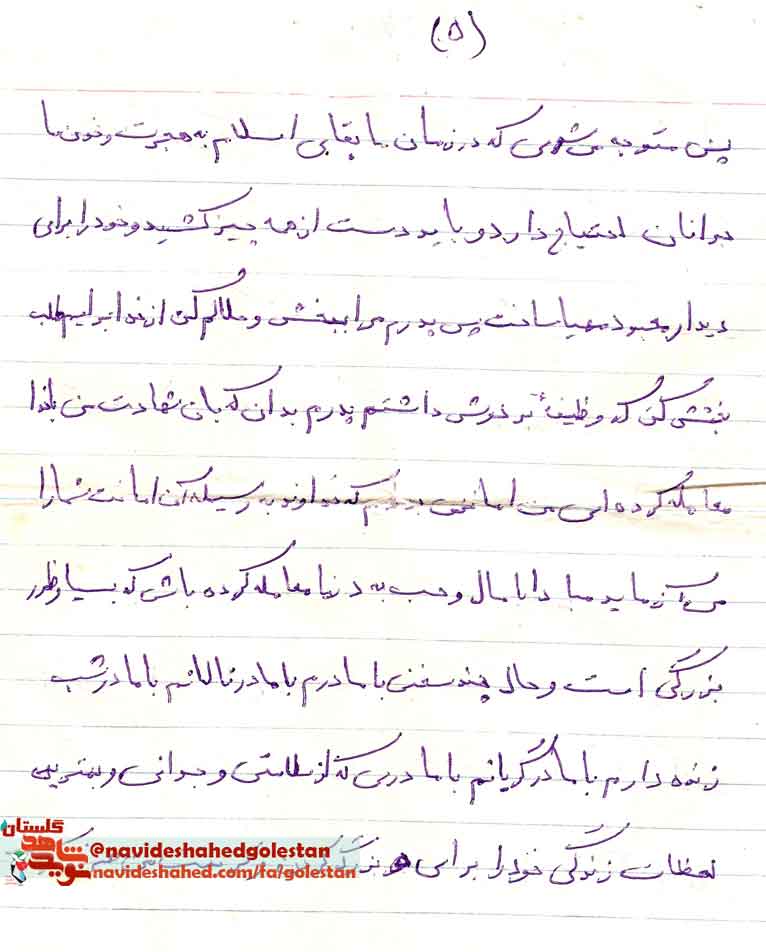 (۵)
پس متوجه می شوی که در زمان ما بقای اسلام به هجرت و خون ما
جوانان احتیاج دارد و باید دست از همه چیز کشید و خود را برای
دیدار معبود مهیا ساخت پس پدرم مرا ببخش و حلالم کن از خدا برایم طلب
بخشش کن که وظیفهٔ بر دوش داشتم پدرم بدان که با شهادت من با خدا
معامله کرده ای من امانتی بودم که خداوند به وسیله آن امانت شما را
می آزماید مبادا با مال و حب به دنیا معامله کرده باشی که بسیار
بزرگی است و حال چند سخنی با مادرم با مادر نالانم با مادر شب
زنده دارم با مادر گریانم با مادری که از سلامتی و جوانی و بهترین
لحظات زندگی خود را برای
گلستان
نوید شاهد
@navideshahedgolestan
navideshahed.com/fa/golestan